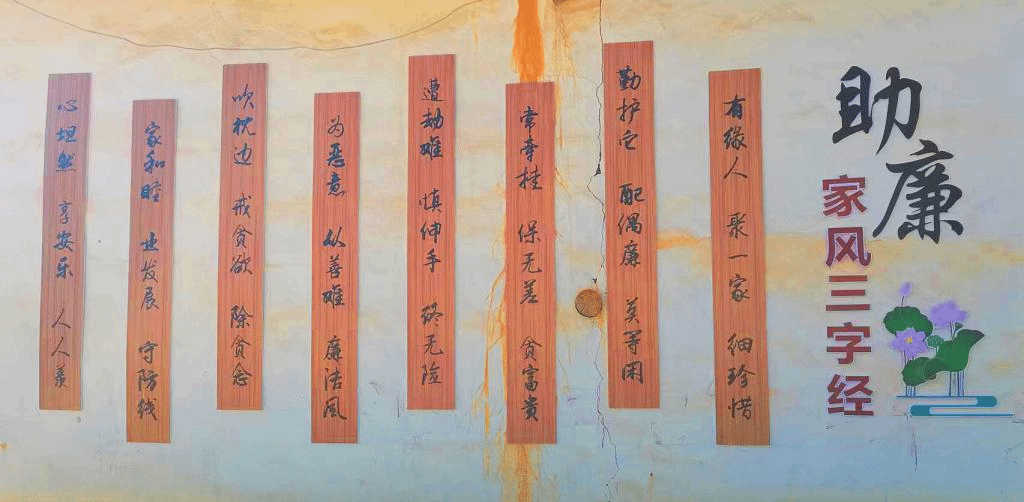 助廉
家风三字经
有缘人 聚一家 细珍惜
勤护它 配偶廉 莫等闲
常牵挂 保无差 贪富贵
遭劫难 慎伸手 路无险
为恶意 从善难 廉洁风
吹枕边 戒贪欲 除贪念
家和睦 业发展 守防线
心坦然 享安乐 人人羡